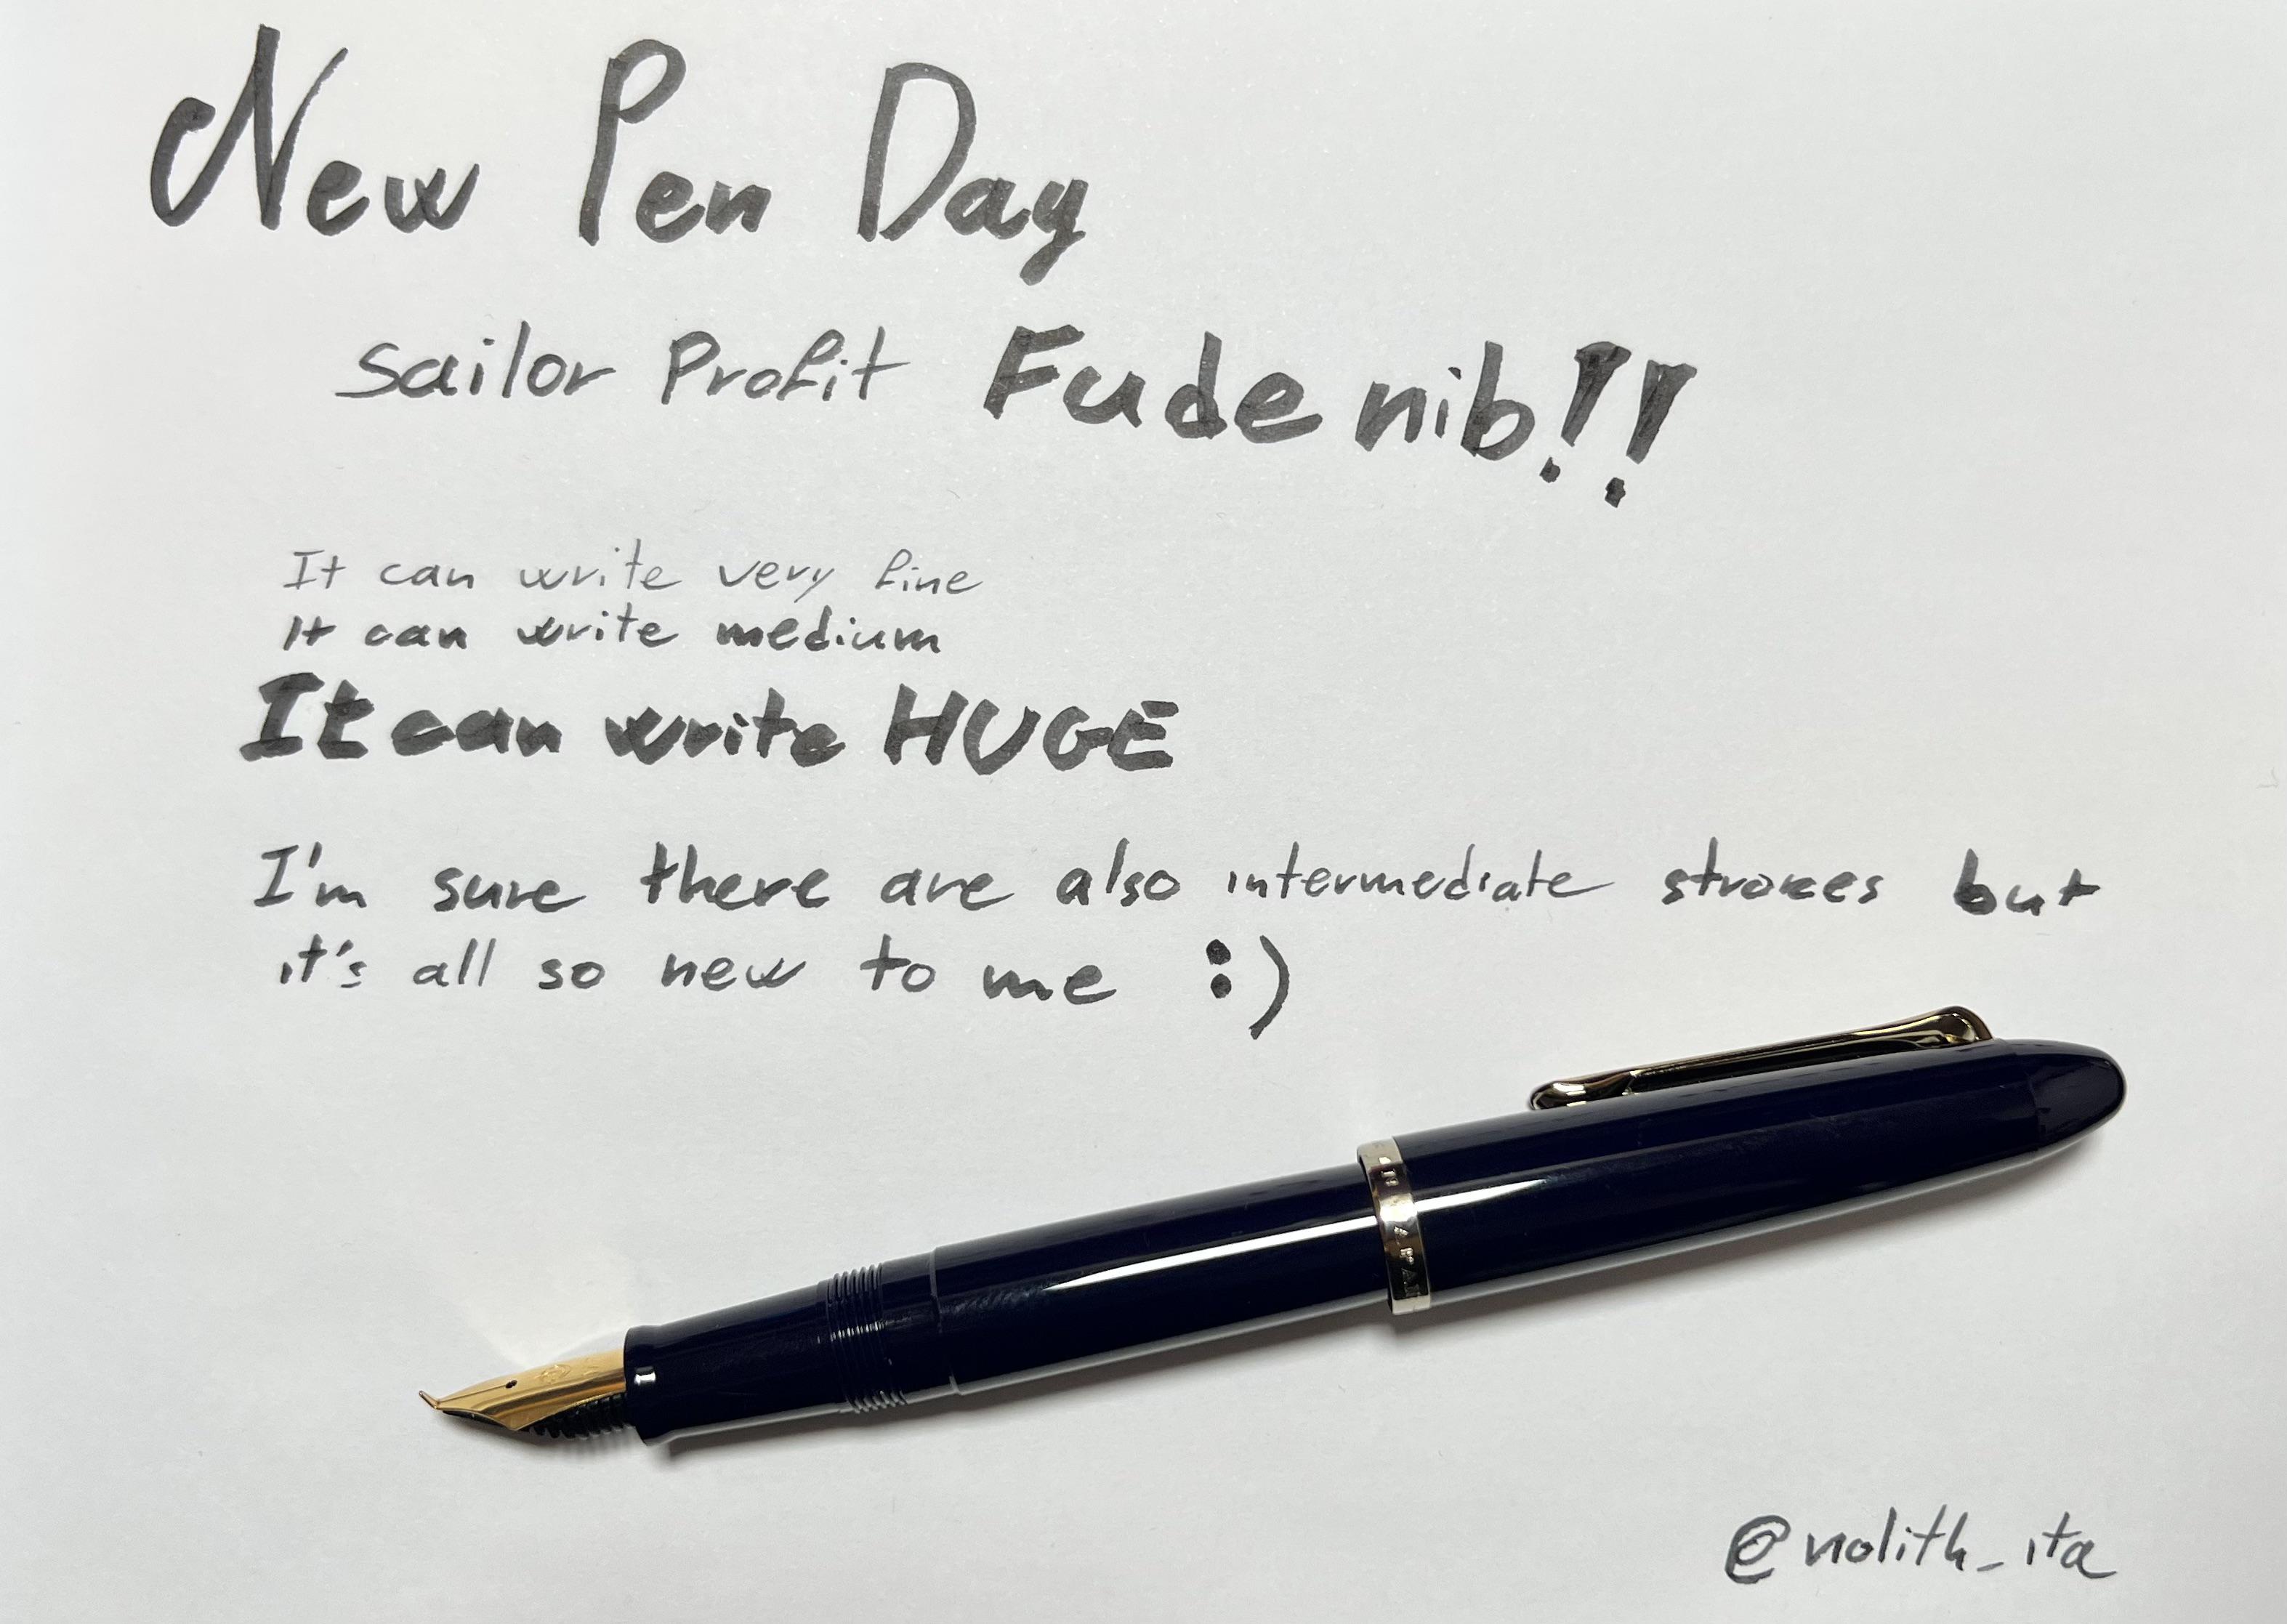 New Pen Day
Sailor Profit Fude nib!!
It can write very fine
It can write medium
It can write HUGE
I'm sure there are also intermediate strokes but
it's all so new to me :)
@nolith_ita